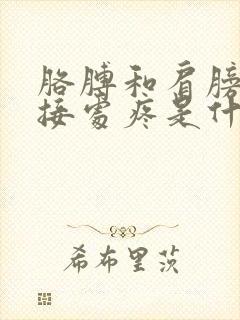 胳膊和肩膀
接处疼是什
希布里茨